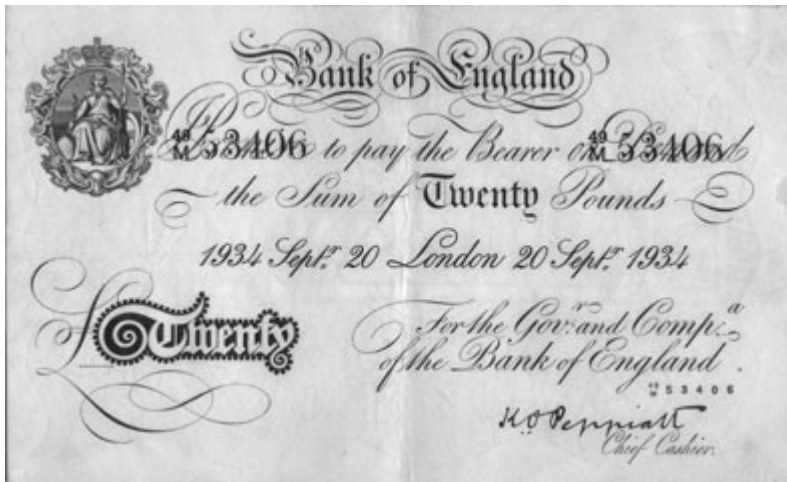 Bank of England
49/M 53406 49/M 53406
I Promise to pay the Bearer on Demand
the Sum of Twenty Pounds
1934 Septr. 20 London 20 Septr. 1934
£ Twenty
For the Govr. and Compa.
of the Bank of England.
49/M 53406
K O Peppiatt
Chief Cashier.